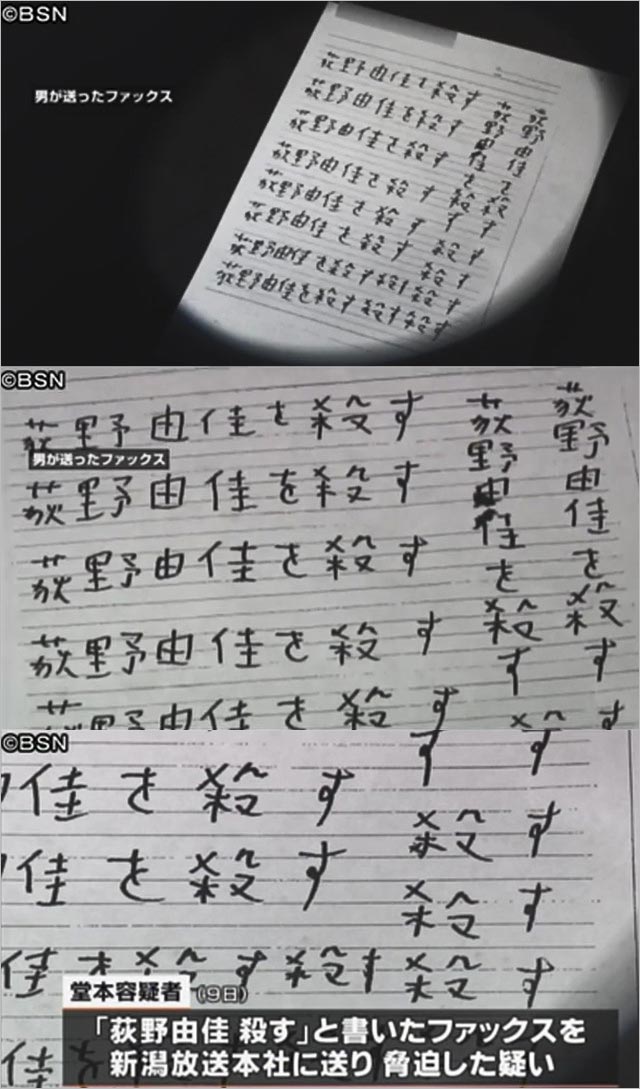 ©BSN
男が送ったファックス
荻野由佳を殺す
荻野由佳を殺す
荻野由佳を殺す
荻野由佳を殺す
荻野由佳を殺す
荻野由佳を殺す 殺す
荻野由佳を殺す殺す殺す
荻野由佳を殺す殺す殺す
荻野由佳を殺す
荻野由佳を殺す
©BSN
荻野由佳を殺す
男が送ったファックス
荻野由佳を殺す
荻野由佳を殺す
荻野由佳を殺す
荻野由佳を殺す
荻野由佳を殺す
荻野由佳を殺す
©BSN
佳を殺す
殺す
佳を殺す
殺す
佳を殺す殺す殺す
堂本容疑者 (9日)
「荻野由佳 殺す」と書いたファックスを
新潟放送本社に送り 脅迫した疑い